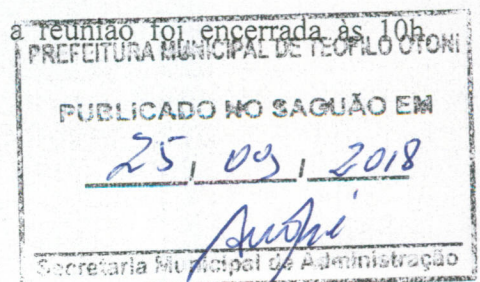 a reunião foi encerrada às 10h
PREFEITURA MUNICIPAL DE TEOFILO OTONI
PUBLICADO NO SAGUÃO EM
25, 09, 2018
Secretaria Municipal de Administração